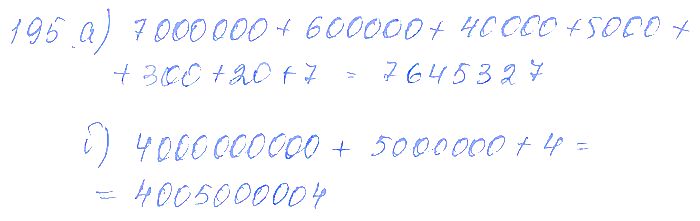 195 а) 7000000 + 600000 + 40000 + 5000 +
+ 300 + 20 + 7 = 7645327
б) 4000000000 + 5000000 + 4 =
= 4005000004